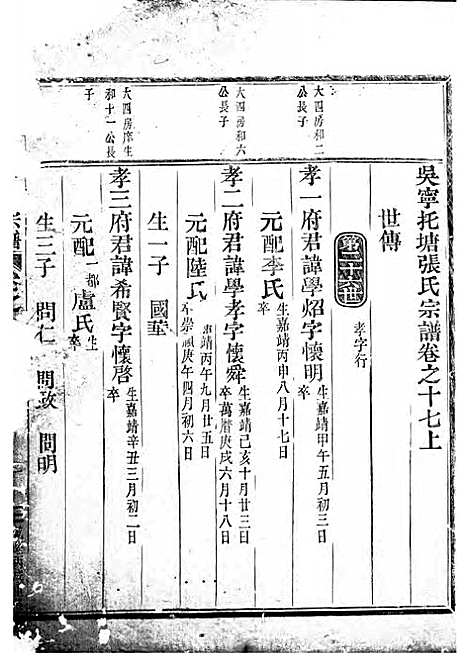 吳寧托塘張氏宗譜卷之十七上
世傳
孝字行
大四房和二
公長子
孝一府君諱學炤字懷明
生嘉靖甲午五月初三日
卒
元配李氏
生嘉靖丙申八月十七日
卒
大四房和六
公長子
孝二府君諱學孝字懷舜
生嘉靖己亥十月廿三日
卒萬曆庚戌六月十八日
元配陸氏
嘉靖丙午九月廿五日
卒崇禎庚午四月初六日
生一子 國華
大四房庠生
和十一公長
子
孝三府君諱希賢字懷啓
生嘉靖辛丑三月初二日
卒
元配一都盧氏
生
卒
生三子 問仁 問政 問明
宗譜